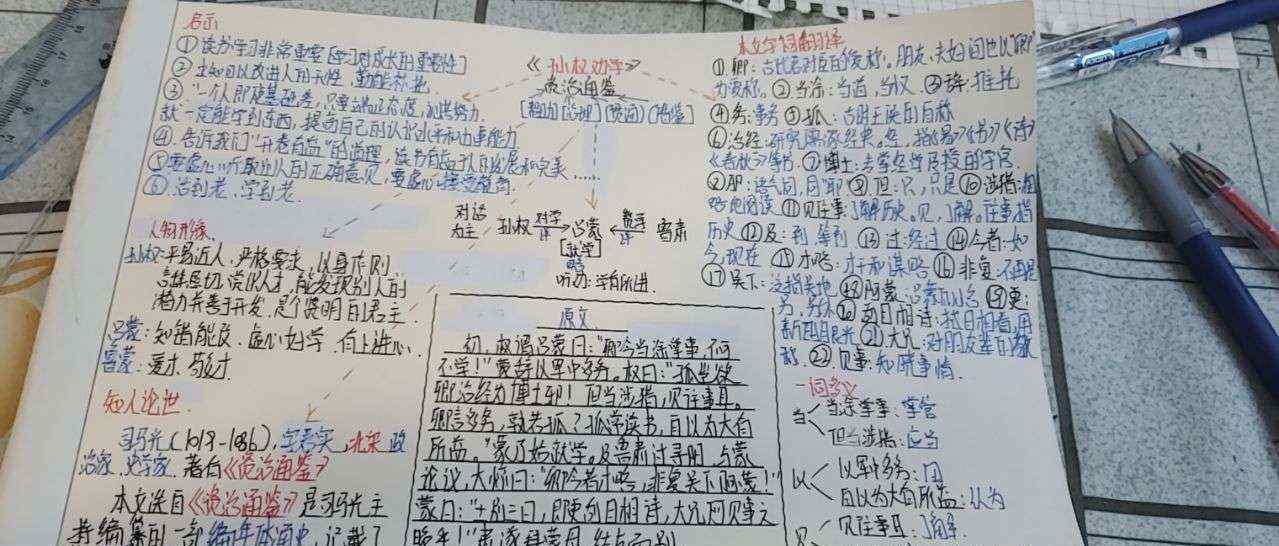 启示
① 读书学习非常重要 [学习对成长的重要性]
④ 告诉我们"开卷有益"的道理，读书有益于人的发展和完美……
⑤ 要虚心听取他人的正确意见，要虚心接受
⑥ 活到老、学到老.
人物形象
孙权：平易近人、严格要求、以身作则
言辞恳切、爱惜人才，能发现别人的
潜力并善于开发，是个贤明的君主.
吕蒙：知错能改、虚心好学、有上进心.
鲁肃：爱才、敬才.
知人论世.
司马光(1019-1086)，字君实，北宋政
治家、史学家.著有《资治通鉴》
本文选自《资治通鉴》是司马光主
持编纂的一部编年体通史，记载了
《孙权劝学》
资治通鉴
[帮助][治理][  ][借鉴]
对话
为主
孙权 对学 评 → 吕蒙 ← 敬才 评 鲁肃
[就学]
略
听劝：学有所进.
原文
初，权谓吕蒙曰："卿今当涂掌事，不可
不学！"蒙辞以军中多务。权曰："孤岂欲
卿治经为博士邪！但当涉猎，见往事耳。
卿言多务，孰若孤？孤常读书，自以为大有
所益。"蒙乃始就学。及鲁肃过寻阳，与蒙
论议，大惊曰："卿今者才略，非复吴下阿蒙！"
蒙曰："士别三日，即更刮目相待，大兄何见事之
晚乎！"肃遂拜蒙母，结友而别
本文字词翻译
①卿：古代君对臣的爱称。朋友、夫妇间也以"卿"
为爱称. ②当涂：当道，当权 ③辞：推托
④务：事务 ⑤孤：古时王侯的自称
⑥治经：研究儒家经典。经，指《易》《书》《诗》
《春秋》等书. ⑦博士：专掌经学传授的学官.
邪：语气词，同"耶" ⑨但：只，只是 ⑩涉猎：粗
略地阅读 ⑪见往事：了解历史。见，了解。往事，指
历史 ⑫及：到，等到 ⑬过：经过 ⑭今者：如
今，现在 ⑮才略：才干和谋略 ⑯非复：不再是
⑰吴下：泛指吴地. ⑱阿蒙：吕蒙的小名 ⑲更：
另，另外 ⑳刮目相待：拭目相看，用
新的眼光 ㉑大兄：对朋友辈的敬
称. ㉒见事：知晓事情.
一词多义
当 当涂掌事：掌管
但当涉猎：应当
以 以军中多务：用
自以为大有所益：认为
见往事耳：了解